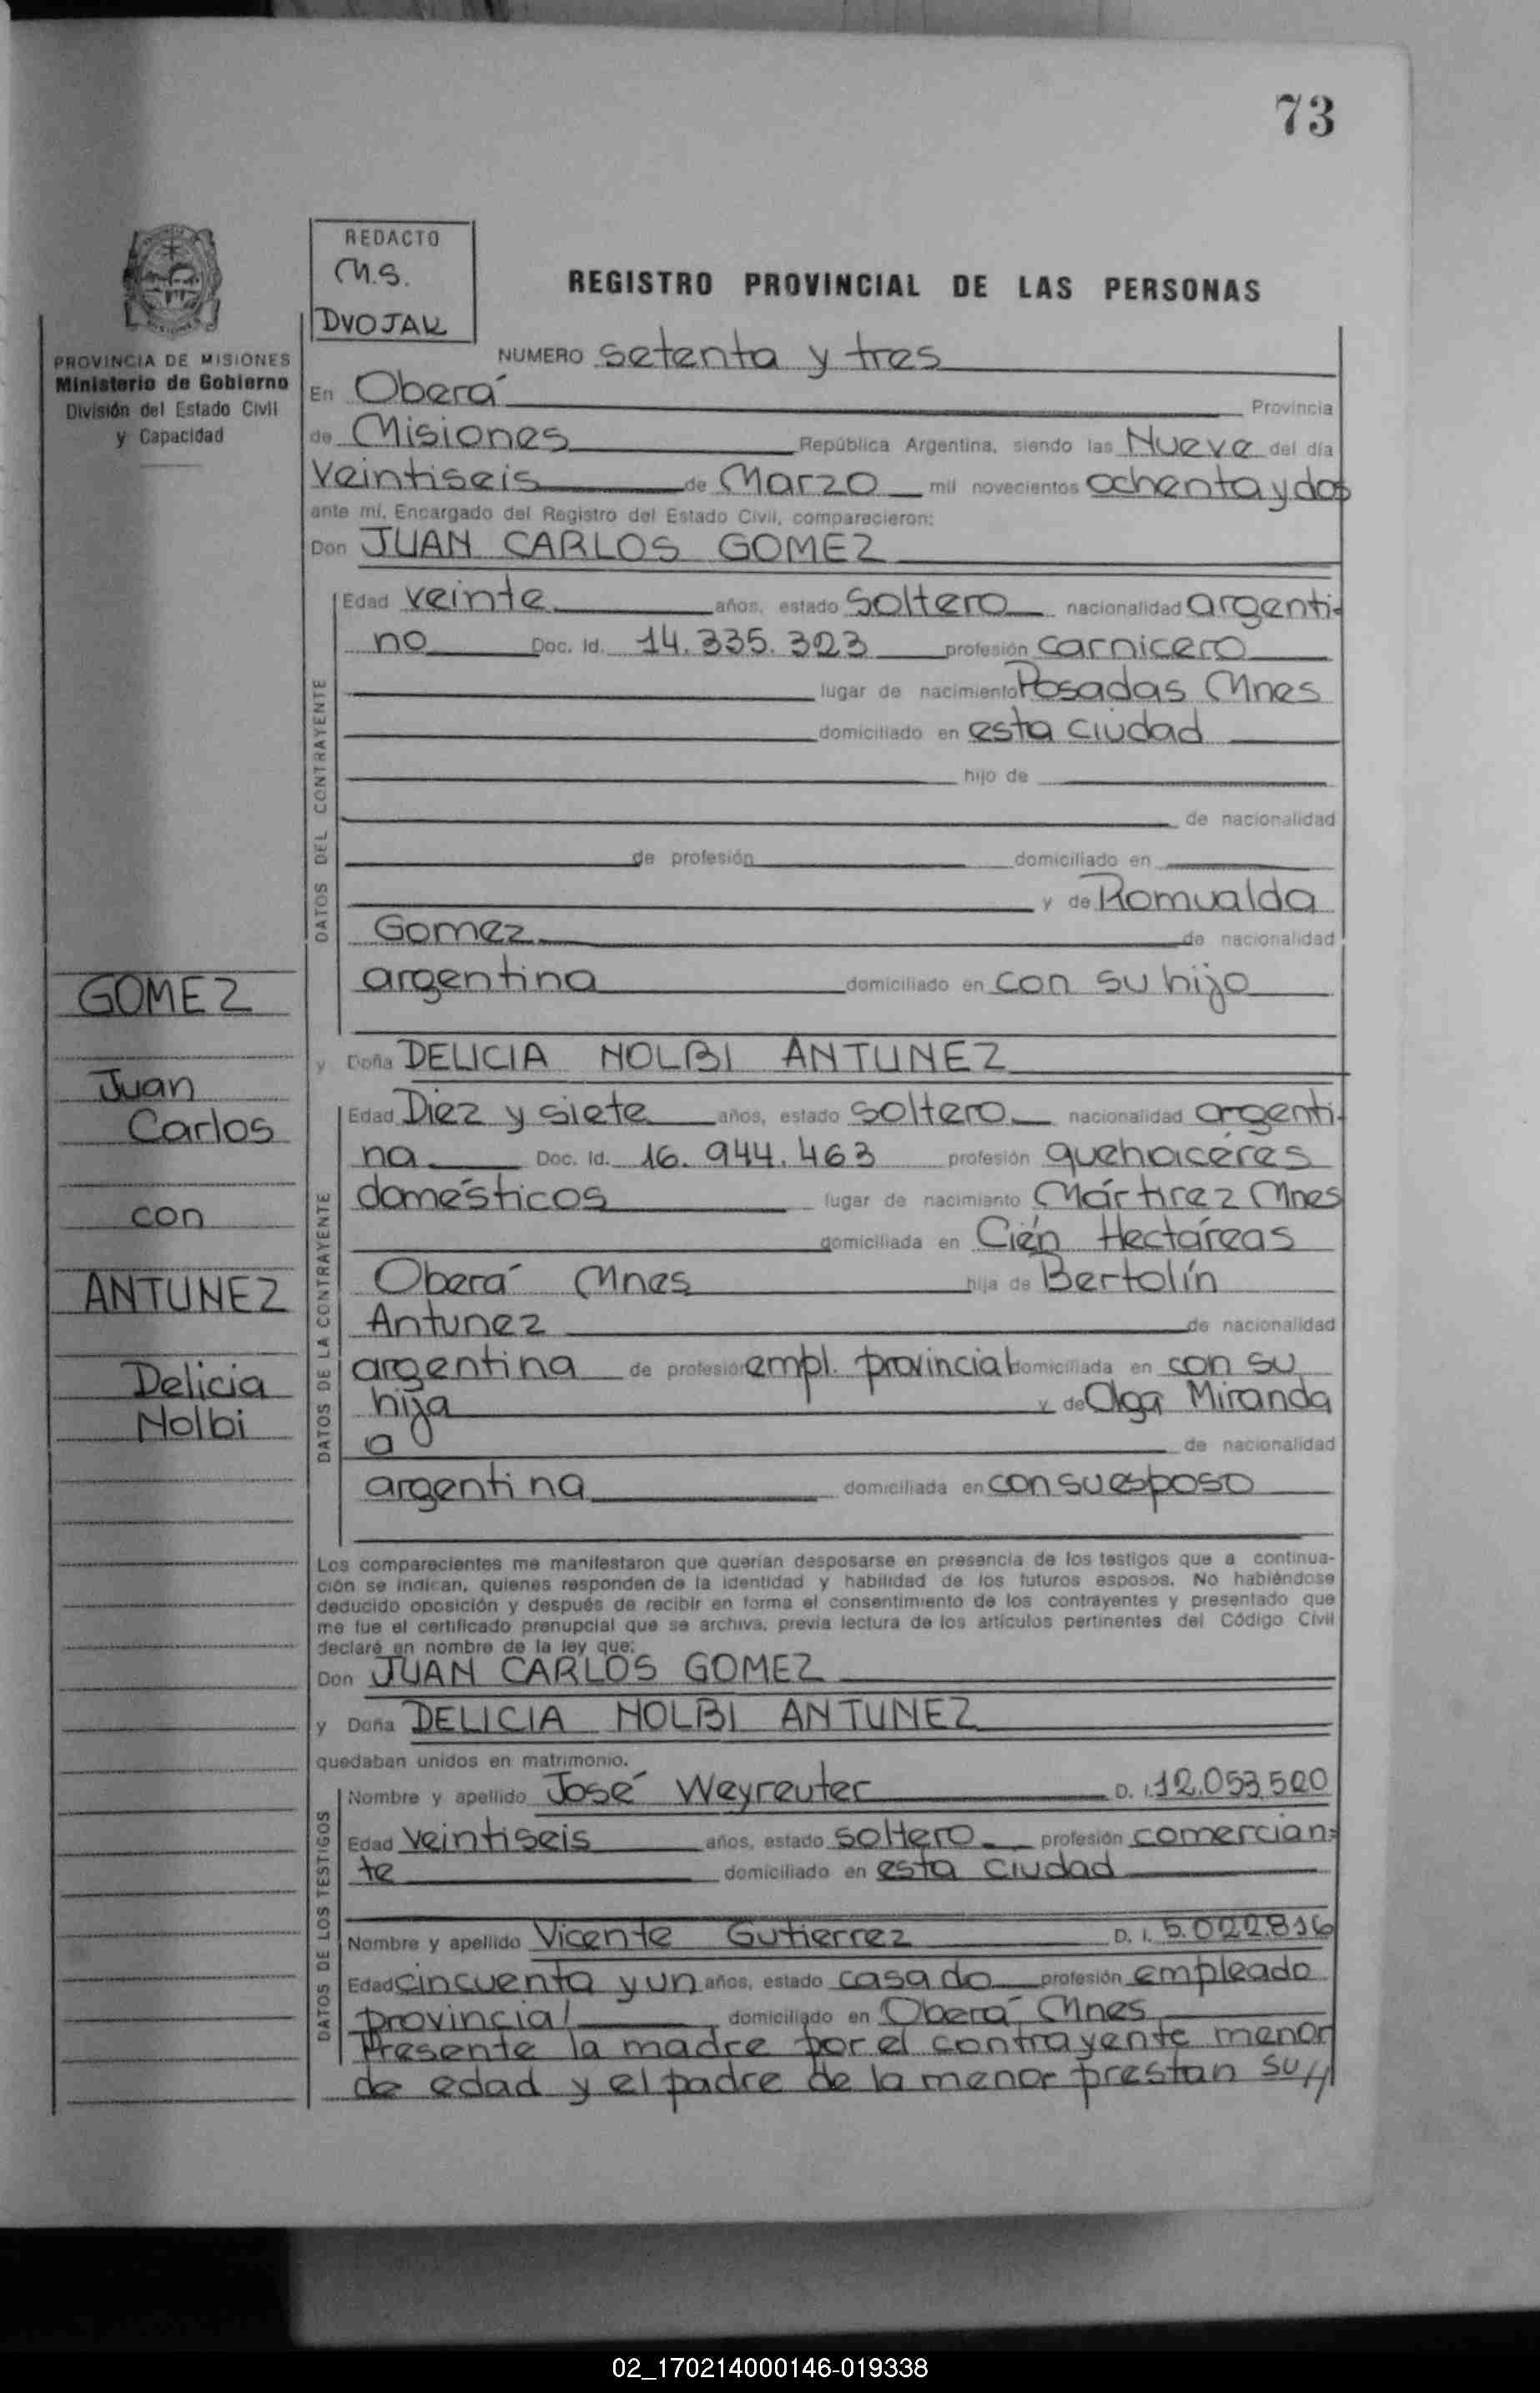 73
REDACTO
M.S.
DVOJAK
REGISTRO PROVINCIAL DE LAS PERSONAS
PROVINCIA DE MISIONES
Ministerio de Gobierno
División del Estado Civil
y Capacidad
NUMERO setenta y tres
En Oberá Provincia
de Misiones República Argentina, siendo las Nueve del día
veintiseis de Marzo mil novecientos ochenta y dos
ante mí, Encargado del Registro del Estado Civil, comparecieron:
Don JUAN CARLOS GOMEZ
DATOS DEL CONTRAYENTE
Edad veinte años, estado soltero nacionalidad argenti-
no Doc. Id. 14.335.323 profesión carnicero
lugar de nacimiento Posadas Mnes
domiciliado en esta ciudad
hijo de
de nacionalidad
de profesión domiciliado en
y de Romualda
Gomez de nacionalidad
argentina domiciliado en con su hijo
y Doña DELICIA NOLBI ANTUNEZ
DATOS DE LA CONTRAYENTE
Edad Diez y siete años, estado soltero nacionalidad argenti-
na Doc. Id. 16.944.463 profesión quehaceres
domésticos lugar de nacimianto Mártirez Mnes
domiciliada en Cien Hectáreas
Oberá Mnes hija de Bertolín
Antunez de nacionalidad
argentina de profesión empl. provincial domiciliada en con su
hija y de Olga Miranda
a de nacionalidad
argentina domiciliada en con su esposo
GOMEZ
Juan
Carlos
con
ANTUNEZ
Delicia
Nolbi
Los comparecientes me manifestaron que querían desposarse en presencia de los testigos que a continua-
ción se indican, quienes responden de la identidad y habilidad de los futuros esposos. No habiéndose
deducido oposición y después de recibir en forma el consentimiento de los contrayentes y presentado que
me fue el certificado prenupcial que se archiva, previa lectura de los artículos pertinentes del Código Civil
declaré en nombre de la ley que:
Don JUAN CARLOS GOMEZ
y Doña DELICIA NOLBI ANTUNEZ
quedaban unidos en matrimonio.
DATOS DE LOS TESTIGOS
Nombre y apellido José Weyreuter D. I. 12.053.520
Edad veintiseis años, estado soltero profesión comercian-
te domiciliado en esta ciudad
Nombre y apellido Vicente Gutierrez D. I. 5.022.816
Edad cincuenta y un años, estado casado profesión empleado
provincial domiciliado en Oberá Mnes
Presente la madre por el contrayente menor
de edad y el padre de la menor prestan su//
02_170214000146-019338